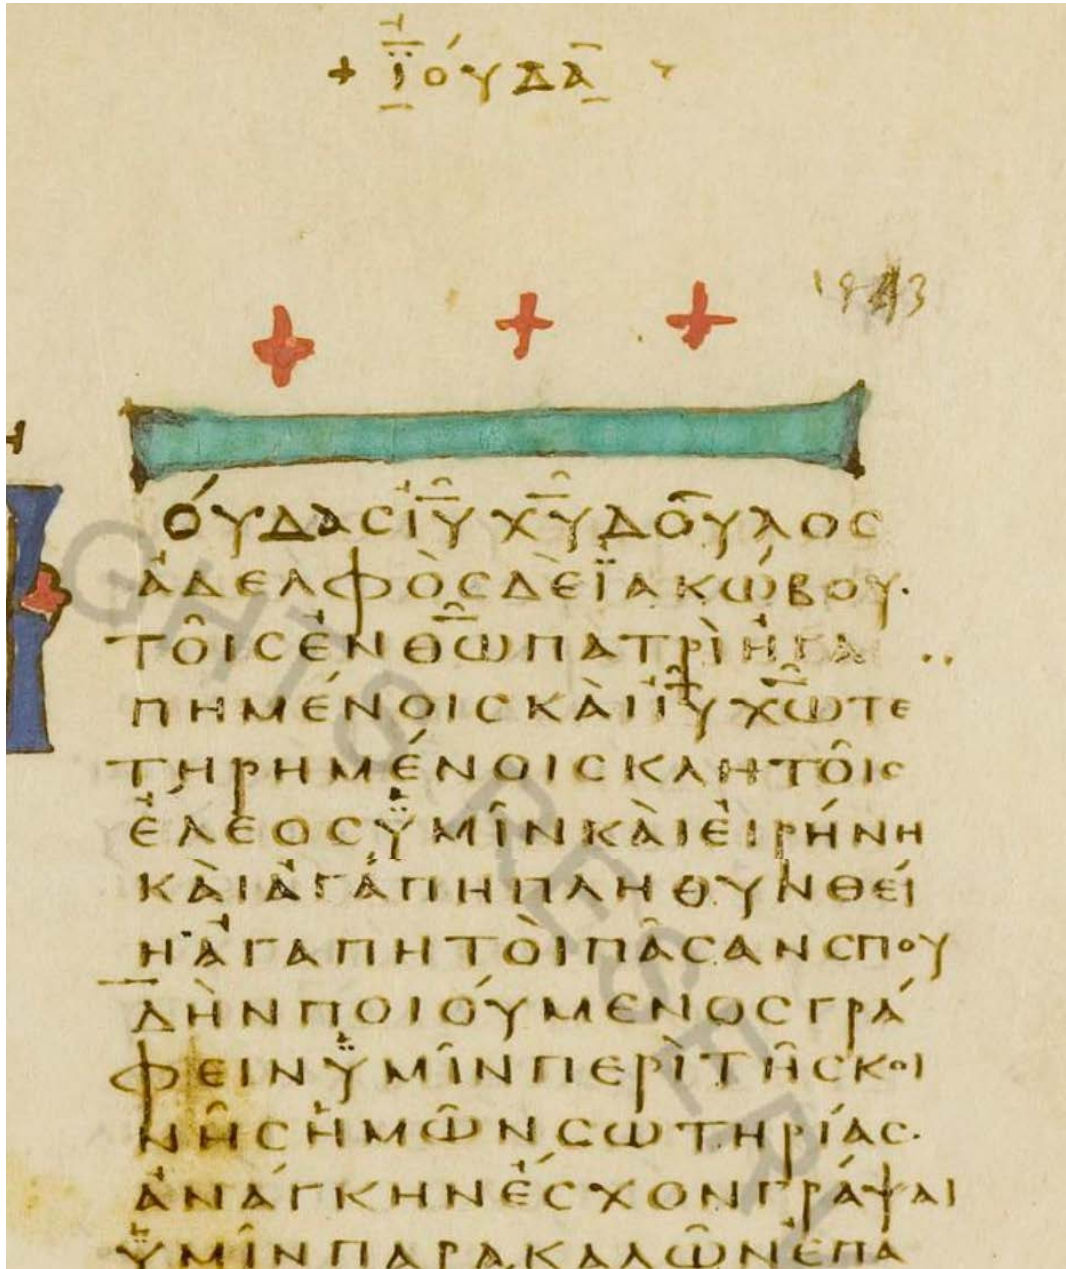 + ΪΟΎΔΑ
ΟΎΔΑϹ ΙΥ̅ ΧΥ̅ ΔΟΥ͂ΛΟϹ
ἈΔΕΛΦῸϹ ΔῈ ΪΑΚΏΒΟΥ·
ΤΟΙ͂Ϲ ἘΝ ΘΩ̅ ΠΑΤΡῚ ἨΓΑ
ΠΗΜΈΝΟΙϹ ΚΑῚ ΙΥ̅ ΧΩ̅ ΤΕ
ΤΗΡΗΜΈΝΟΙϹ ΚΛΗΤΟΙ͂Ϲ
ἜΛΕΟϹ ΫΜΙ͂Ν ΚΑῚ ΕἸΡΉΝΗ
ΚΑῚ ἈΓΆΠΗ ΠΛΗΘΥΝΘΕΊ
Η ἈΓΑΠΗΤΟῚ ΠΑ͂ϹΑΝ ϹΠΟΥ
ΔῊΝ ΠΟΙΟΎΜΕΝΟϹ ΓΡΆ
ΦΕΙΝ ΫΜΙ͂Ν ΠΕΡῚ ΤΗ͂Ϲ ΚΟΙ
ΝΗ͂Ϲ ἩΜΩ͂Ν ϹΩΤΗΡΊΑϹ·
ἈΝΆΓΚΗΝ ἜϹΧΟΝ ΓΡΆΨΑΙ
ΫΜΙ͂Ν ΠΑΡΑΚΑΛΩ͂Ν ἘΠΑ